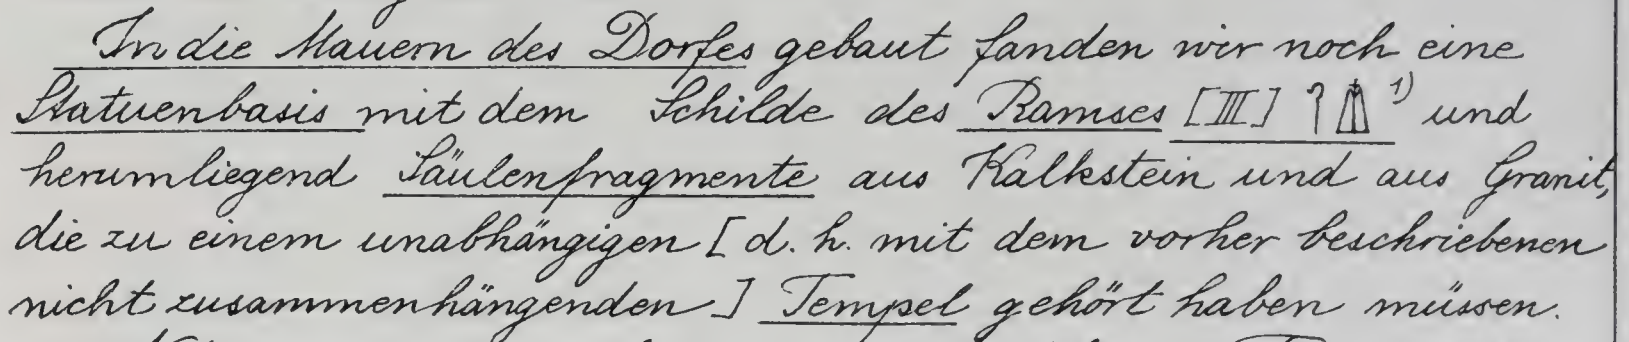 In die Mauern des Dorfes gebaut fanden wir noch eine
Statuenbasis mit dem Schilde des Ramses [III] 𓋾𓉺 ¹⁾ und
herumliegend Säulenfragmente aus Kalkstein und aus Granit,
die zu einem unabhängigen [d. h. mit dem vorher beschriebenen
nicht zusammenhängenden] Tempel gehört haben müssen.